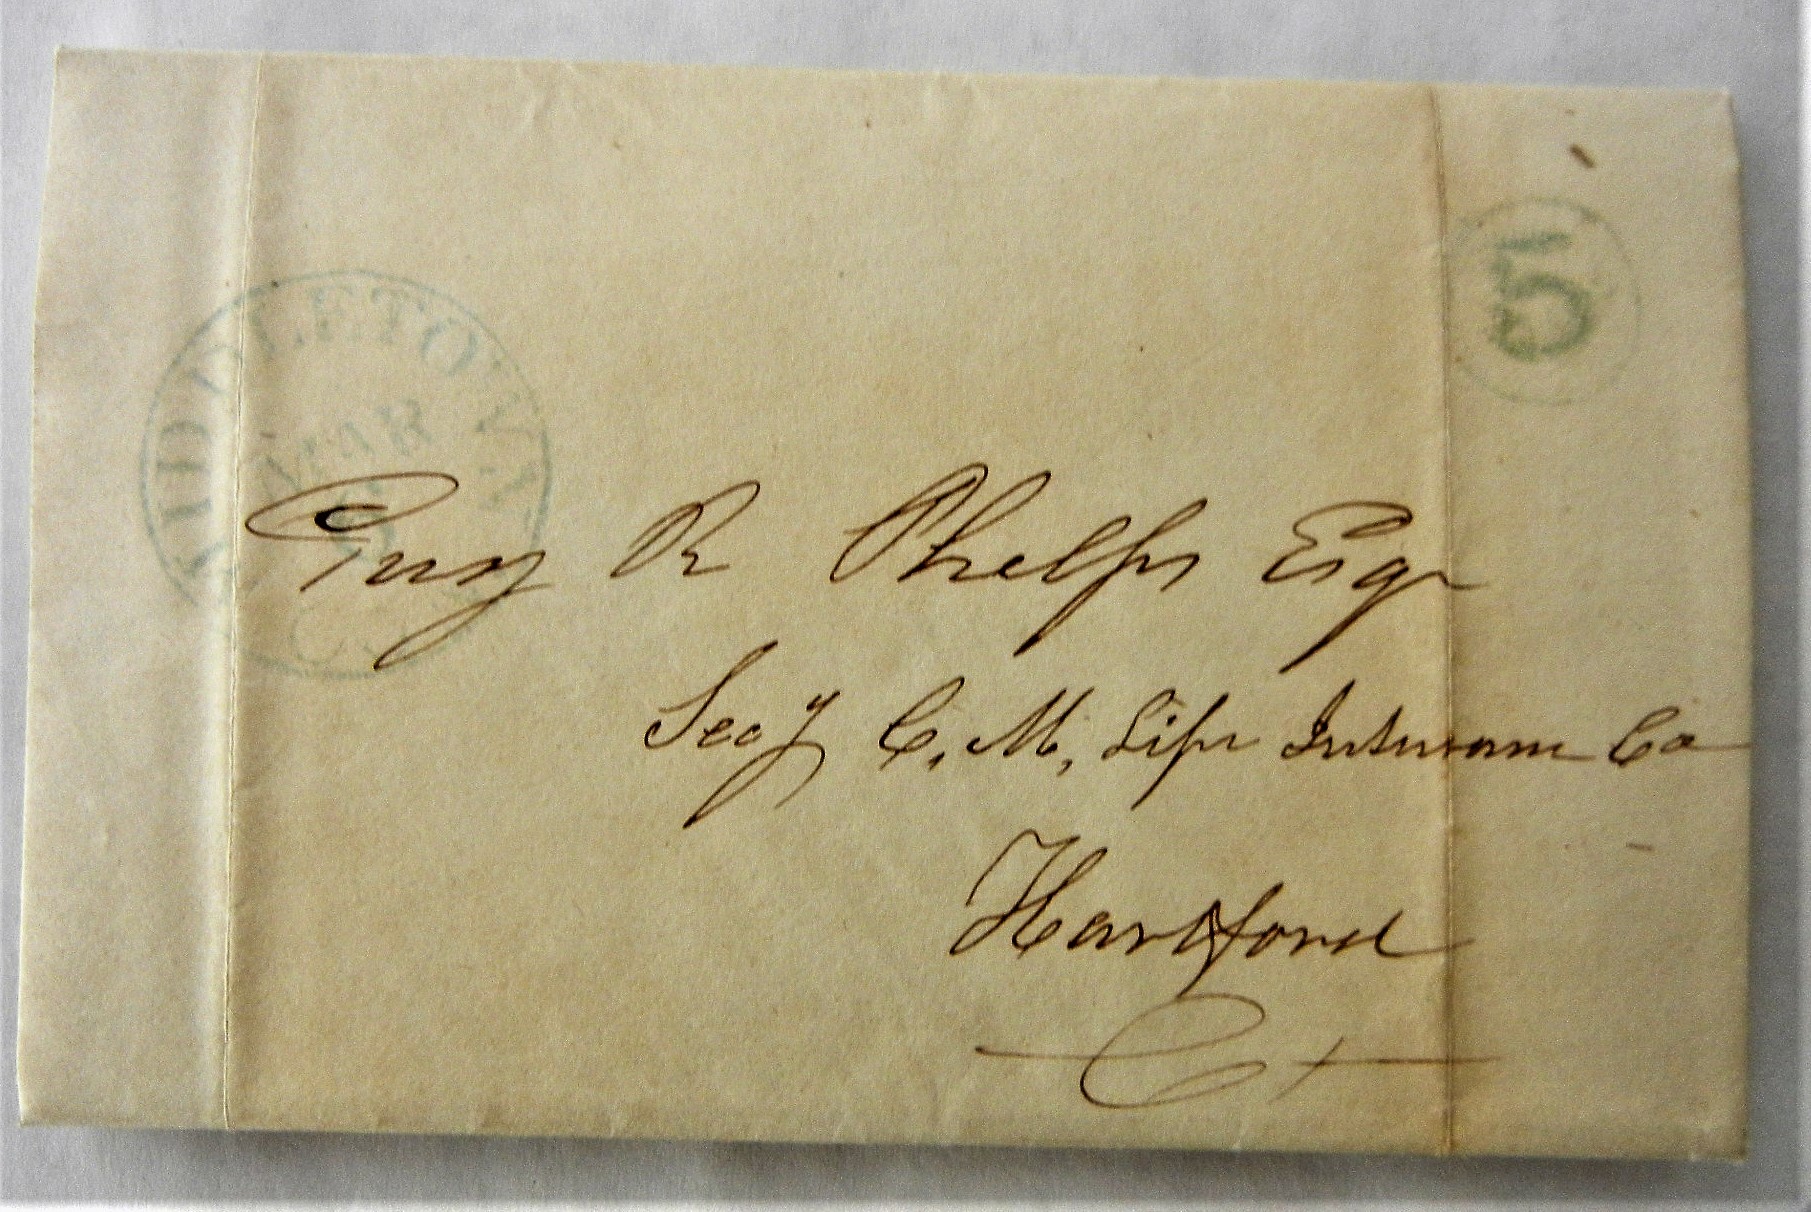 MIDDLETOWN
MAR
5
Guy R Phelps Esqr
Secy C. M. Life Insurance Co
Hartford
Ct